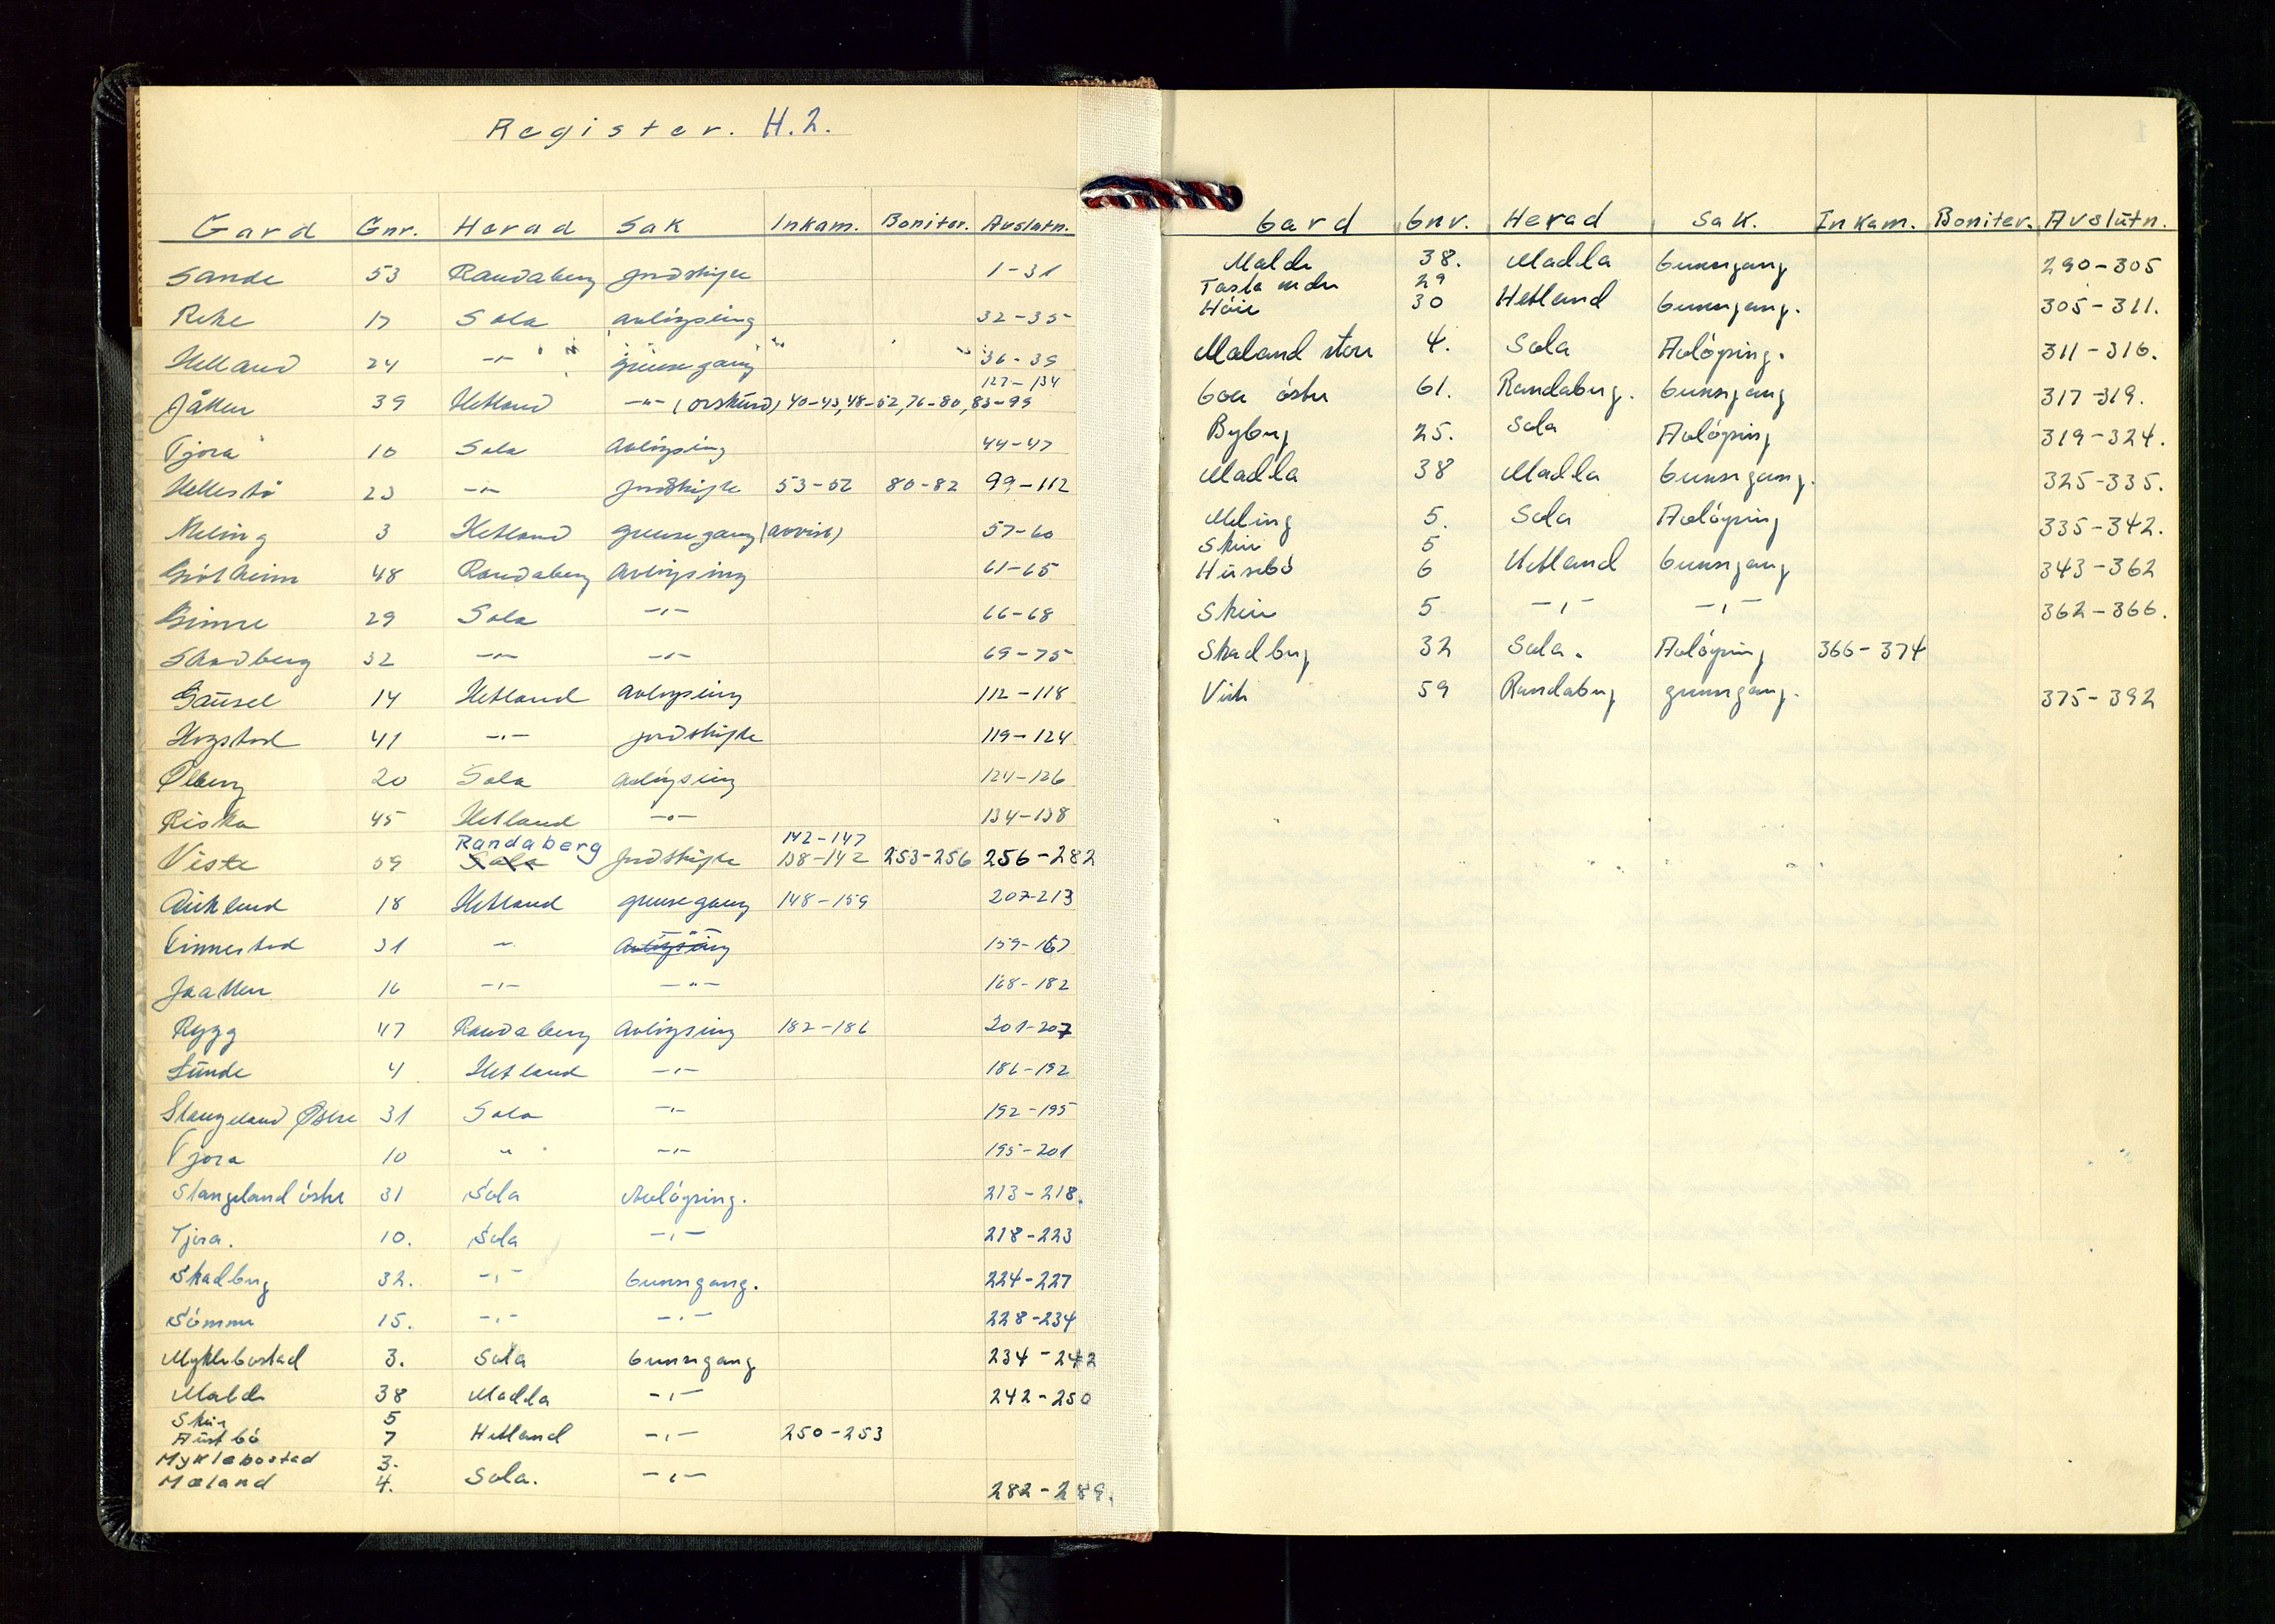 Register. H.2.
Gard Gnr. Herad Sak Inkam. Boniter. Avslutn.
Sande 53 Randaberg jordskifte 1-31
Reke 17 Sola avløysing 32-35
Helland 24 -"- grensegang 36-39
127-134
Jåtten 39 Hetland -"- (orskurd) 40-43, 48-52, 76-80, 83-99
Tjora 10 Sola avløysing 44-47
Hellestø 23 -"- jordskifte 53-57 80-82 99-112
Meling 3 Hetland grensegang (avvist) 57-60
Grötheim 48 Randaberg Avløysing 61-65
Gimre 29 Sola -"- 66-68
Skadberg 32 -"- -"- 69-75
Gausel 14 Hetland avløysing 112-118
Hogstad 41 -"- jordskifte 119-124
Ølberg 20 Sola avløysing 124-126
Riska 45 Hetland -"- 134-138
Randaberg 142-147
Viste 59 Sola Jordskifte 138-142 253-256 256-282
Auklend 18 Hetland grensegang 148-159 207-213
Finnestad 31 " Avløysing -"- 159-167
Jaatten 16 -"- -"- 168-182
Rygg 47 Randaberg Avløysing 182-186 201-207
Lunde 4 Hetland -"- 186-192
Stangeland Østre 31 Sola -"- 192-195
Tjora 10 " -"- 195-201
Stangeland östre 31 Sola Avlöysing. 213-218.
Tjora. 10. Sola -"- 218-223
Skadberg 32. -"- Grensegang. 224-227
Sömme 15. -"- -"- 228-234
Myklebostad 3. Sola Grensegang 234-242
Malde 38 Madla -"- 242-250
Skeie 5
Austbö 7 Hetland -"- 250-253
Myklebostad 3.
Mæland 4. Sola. -"- 282-289.
Gard Gnr. Herad Sak. Inkam. Boniter. Avslutn.
Malde 38. Madla Grensgang 290-305
Tasta nedre 29
Höie 30 Hetland Grensgang. 305-311.
Mæland store 4. Sola Avlöysing. 311-316.
Goa östre 61. Randaberg. Grensgang 317-319.
Byberg 25. Sola Avlöysing 319-324.
Madla 38 Madla Grensgang. 325-335.
Meling 5. Sola Avlöysing 335-342.
Skeie 5
Husebö 6 Hetland Grensgang 343-362
Skeie 5 -"- -"- 362-366.
Skadberg 32 Sola. Avlöysing 366-374
Viste 59 Randaberg grensgang. 375-392